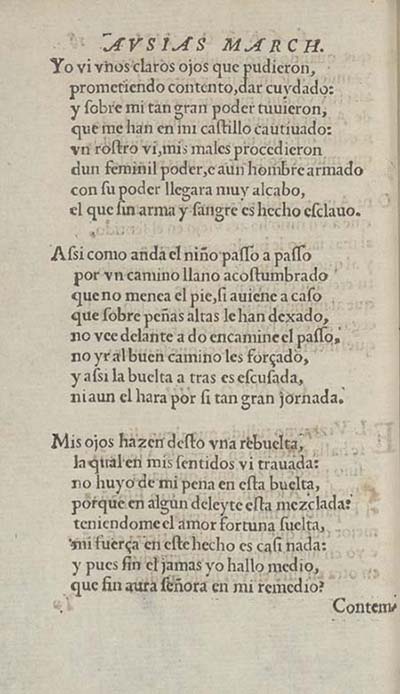 AVSIAS MARCH.
Yo vi vnos claros ojos que pudieron,
prometiendo contento, dar cuydado:
y ſobre mi tan gran poder tuuieron,
que me han en mi caſtillo cautiuado:
vn roſtro vi, mis males procedieron
dun feminil poder, e aun hombre armado
con ſu poder llegara muy alcabo,
el que ſin arma y ſangre es hecho eſclauo.
Aſsi como anda el niño paſſo a paſſo
por vn camino llano acoſtumbrado
que no menea el pie, ſi auiene a caſo
que ſobre peñas altas le han dexado,
no vee delante a do encamine el paſſo,
no yr al buen camino les forçado,
y aſsi la buelta a tras es eſcuſada,
ni aun el hara por ſi tan gran jornada.
Mis ojos hazen deſto vna rebuelta,
la qual en mis ſentidos vi trauada:
no huyo de mi pena en eſta buelta,
porque en algun deleyte eſta mezclada:
teniendome el amor fortuna ſuelta,
mi fuerça en eſte hecho es caſi nada:
y pues ſin el jamas yo hallo medio,
que ſin aura ſeñora en mi remedio?
Contem